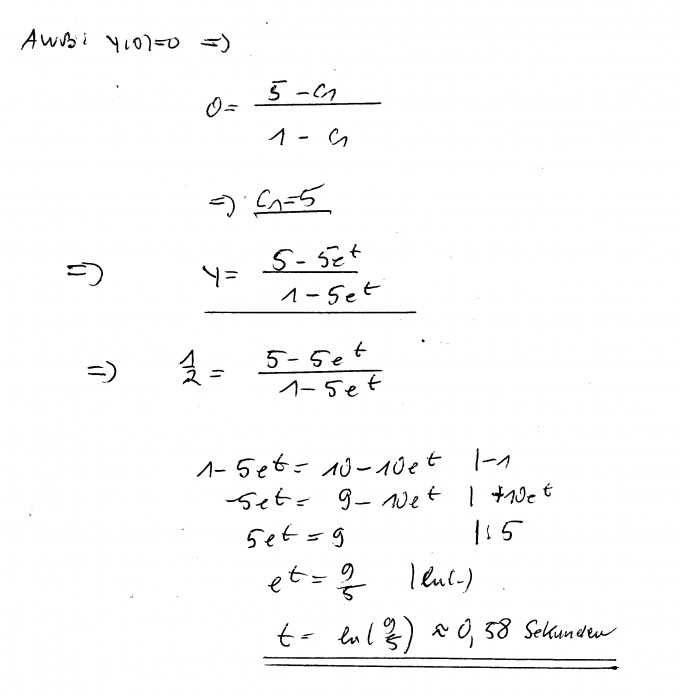 AWB: y(0)=0 =>
0 = (5 - C₁) / (1 - C₁)
=> C₁=5
=> y = (5 - 5e^t) / (1 - 5e^t)
=> 1/2 = (5 - 5e^t) / (1 - 5e^t)
1 - 5e^t = 10 - 10e^t |-1
-5e^t = 9 - 10e^t | +10e^t
5e^t = 9 |: 5
e^t = 9/5 | ln(-)
t = ln(9/5) ≈ 0,58 Sekunden